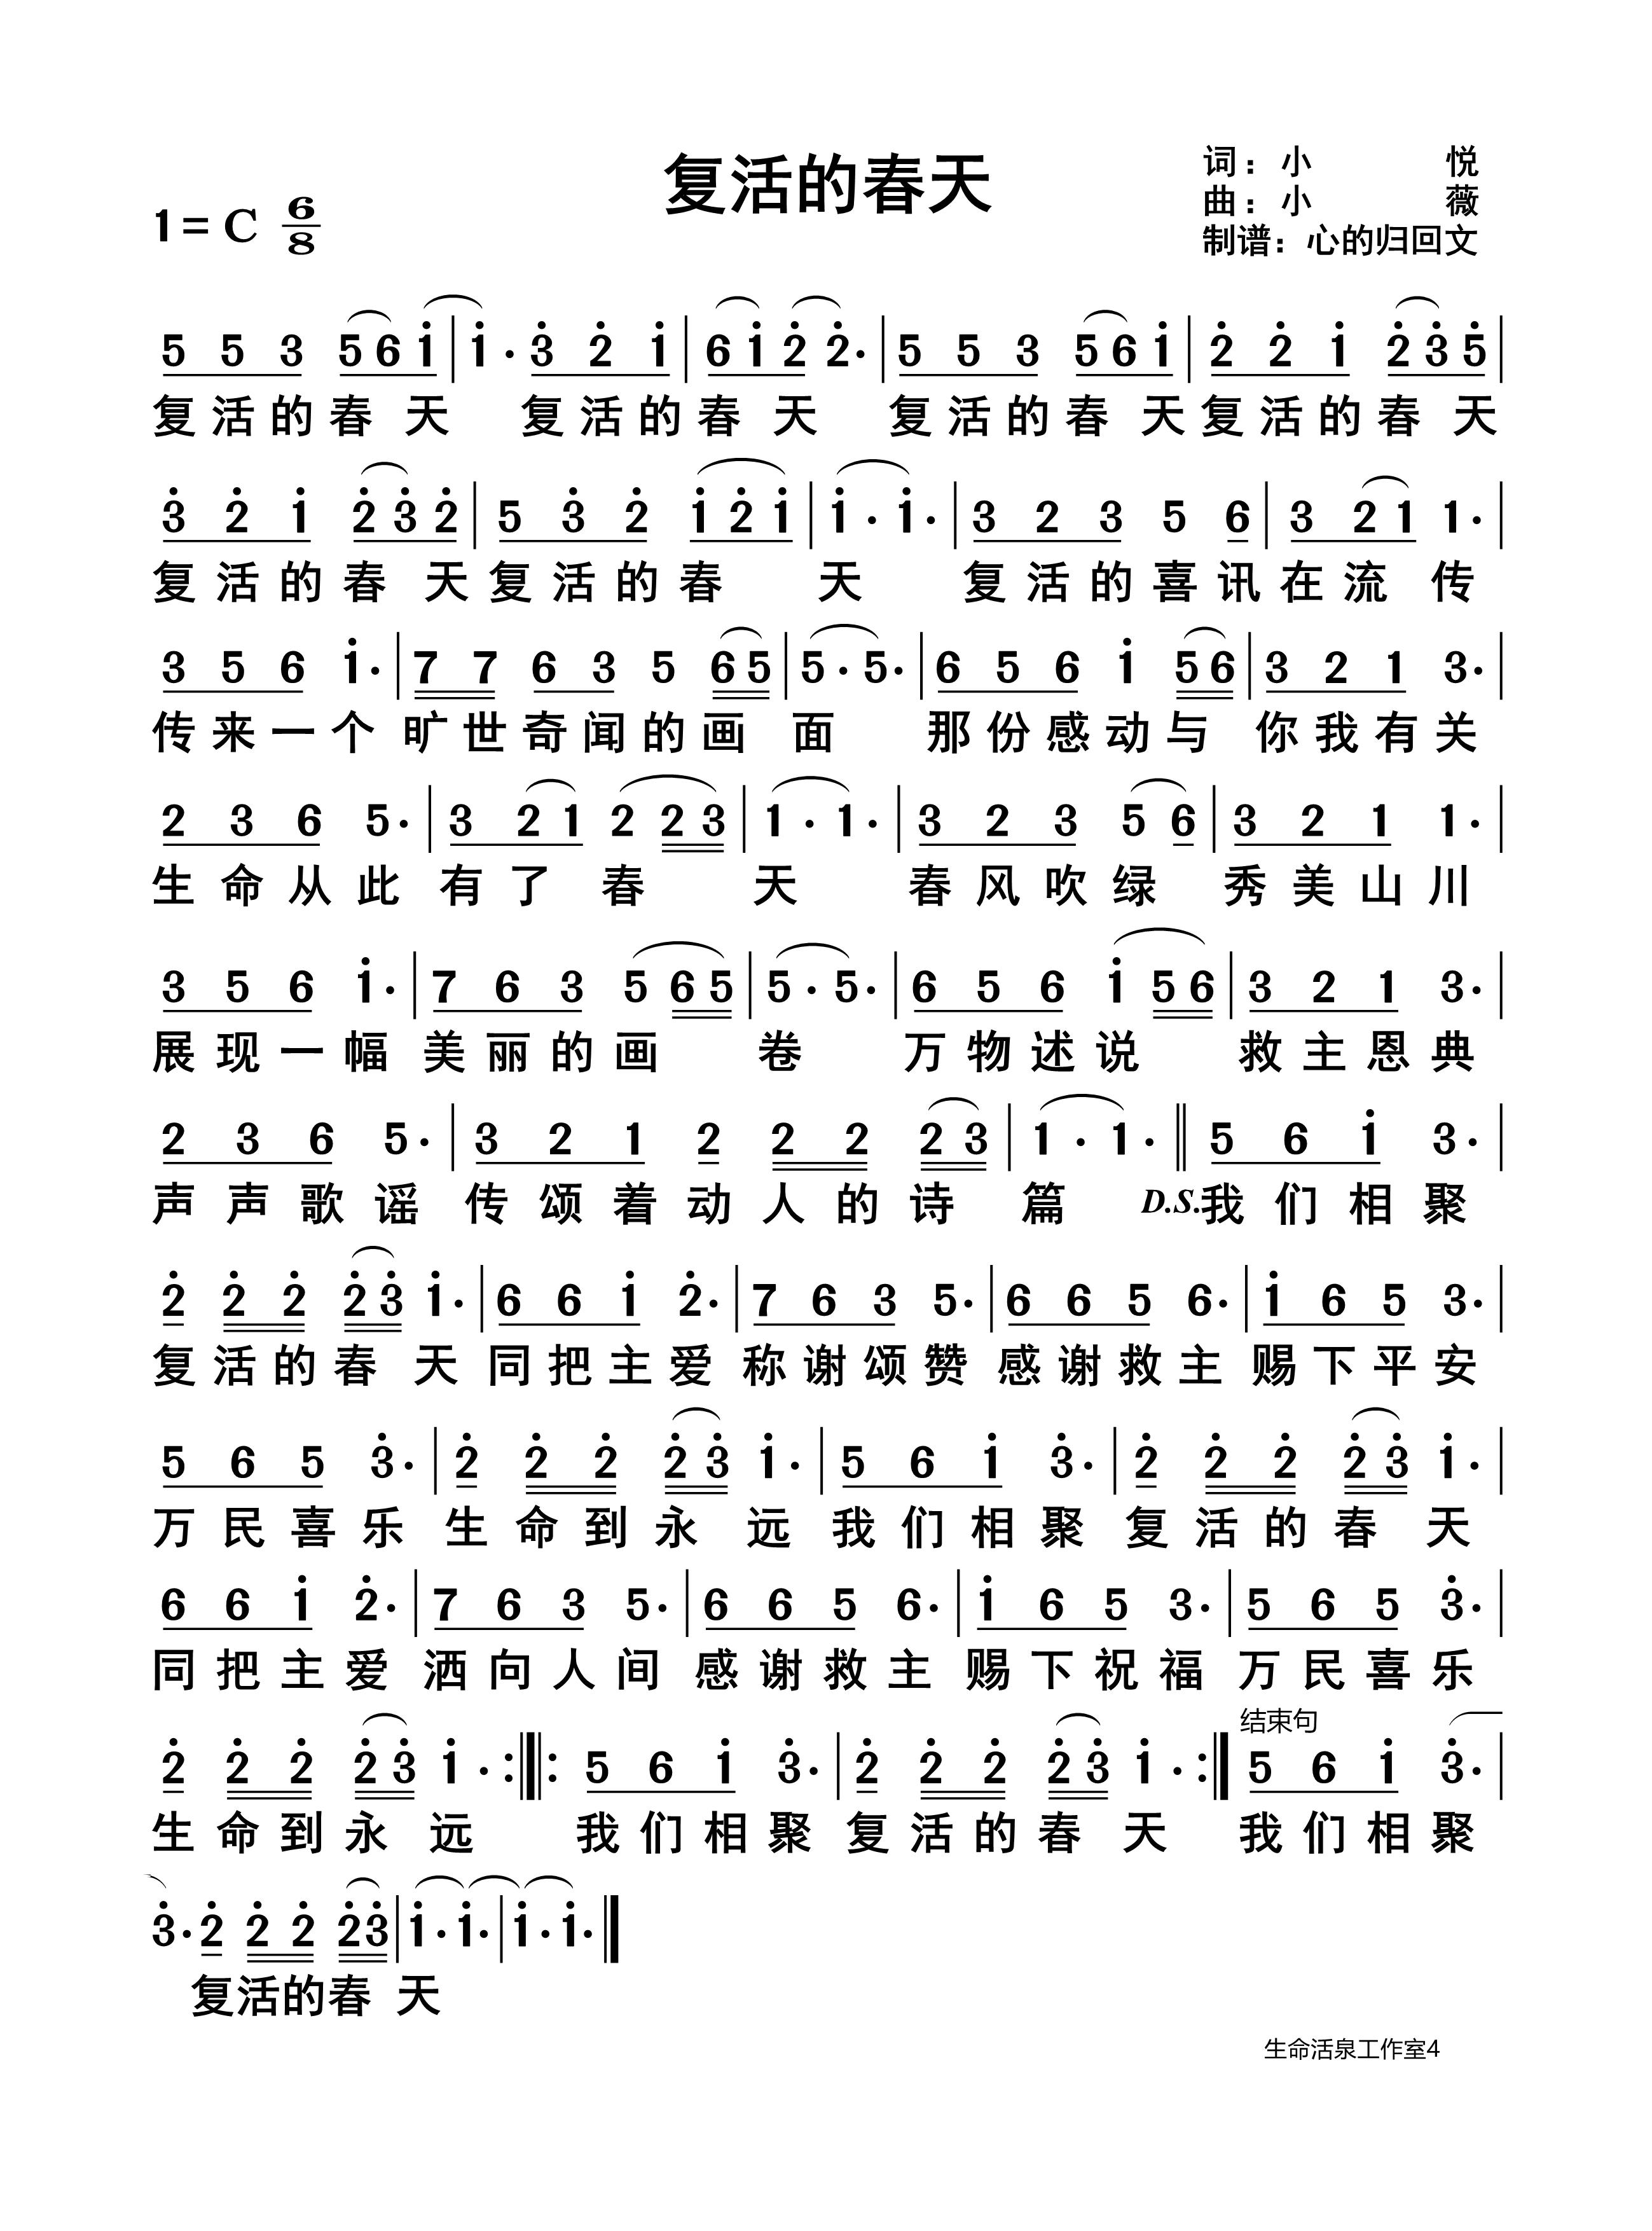 复活的春天
词：小 悦
曲：小 薇
制谱：心的归回文
1=C 6/8
5 5 3 5 6 i | i · 3 2 i | 6 i 2 2· | 5 5 3 5 6 i | 2 2 i 2 3 5 |
复活的春 天 复活的春 天 复活的春 天复活的春 天
3 2 i 2 3 2 | 5 3 2 i 2 i | i · i· | 3 2 3 5 6 | 3 2 1 1· |
复活的春 天复活的春 天 复活的喜讯在流 传
3 5 6 i· | 7 7 6 3 5 6 5 | 5· 5· | 6 5 6 i 5 6 | 3 2 1 3· |
传来一个旷世奇闻的画 面 那份感动与 你我有关
2 3 6 5· | 3 2 1 2 2 3 | 1 · 1· | 3 2 3 5 6 | 3 2 1 1· |
生命从此 有了 春 天 春风吹绿 秀美山川
3 5 6 i· | 7 6 3 5 6 5 | 5· 5· | 6 5 6 i 5 6 | 3 2 1 3· |
展现一幅 美丽的画 卷 万物述说 救主恩典
2 3 6 5· | 3 2 1 2 2 2 2 3 | 1 · 1· || 5 6 i 3· |
声声歌谣 传颂着动人的诗 篇 D.S.我们相聚
2 2 2 2 3 i· | 6 6 i 2· | 7 6 3 5· | 6 6 5 6· | i 6 5 3· |
复活的春 天 同把主爱 称谢颂赞 感谢救主 赐下平安
5 6 5 3· | 2 2 2 2 3 i· | 5 6 i 3· | 2 2 2 2 3 i· |
万民喜乐 生命到永 远 我们相聚 复活的春 天
6 6 i 2· | 7 6 3 5· | 6 6 5 6· | i 6 5 3· | 5 6 5 3· |
同把主爱 洒向人间 感谢救主 赐下祝福 万民喜乐
结束句
2 2 2 2 3 i · :||: 5 6 i 3· | 2 2 2 2 3 i · :|| 5 6 i 3· |
生命到永 远 我们相聚 复活的春 天 我们相聚
3· 2 2 2 2 3 | i · i· | i · i· ||
复活的春 天
生命活泉工作室4